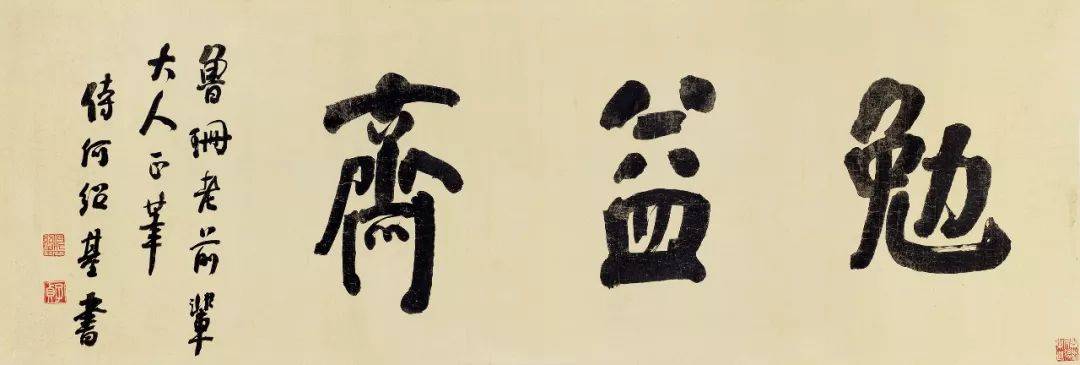 勉益齋
魯珊老前輩
大人正筆
侍何紹基書